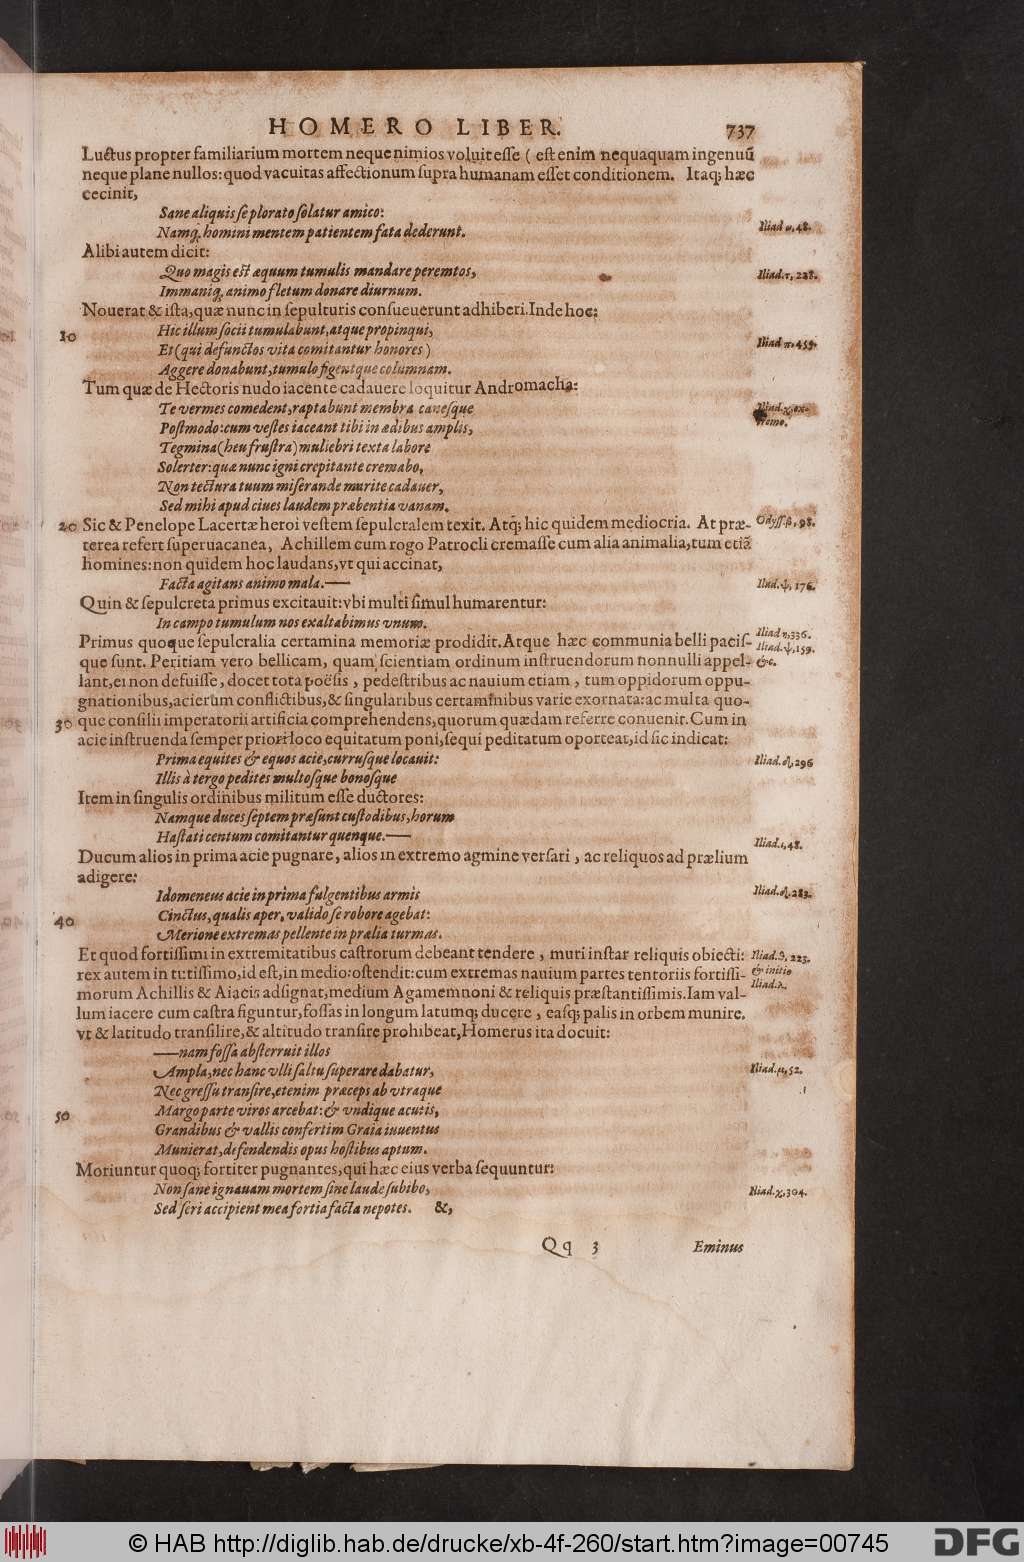 HOMERO LIBER. 737
Luctus propter familiarium mortem neque nimios voluit esse ( est enim nequaquam ingenuū
neque plane nullos: quod vacuitas affectionum supra humanam esset conditionem. Itaq; hæc
cecinit,
Sane aliquis se plorato solatur amico:
Namq; homini mentem patientem fata dederunt. Iliad ω, 48.
Alibi autem dicit:
Quo magis est æquum tumulis mandare peremtos, Iliad. τ, 228.
Immaniq; animo fletum donare diurnum.
Noverat & ista, quæ nunc in sepulturis consueuerunt adhiberi. Inde hoc:
10 Hic illum socii tumulabunt, atque propinqui,
Et (qui defunctos vita comitantur honores) Iliad π, 459.
Aggere donabunt, tumulo figentque columnam.
Tum quæ de Hectoris nudo iacente cadauere loquitur Andromacha:
Te vermes comedent, raptabunt membra canesque Iliad. χ, ex-
Postmodo: cum vestes iaceant tibi in ædibus amplis, tremo.
Tegmina (heu frustra) muliebri texta labore
Solerter: quæ nunc igni crepitante cremabo,
Non tectura tuum miserande marite cadauer,
Sed mihi apud ciues laudem præbentia vanam.
20 Sic & Penelope Lacertæ heroi vestem sepulcralem texit. Atq; hic quidem mediocria. At præ- Odyss. β, 98.
terea refert superuacanea, Achillem cum rogo Patrocli cremasse cum alia animalia, tum etiā
homines: non quidem hoc laudans, vt qui accinat,
Facta agitans animo mala.—— Iliad. ψ, 176.
Quin & sepulcreta primus excitauit: vbi multi simul humarentur:
In campo tumulum nos exaltabimus vnum. Iliad η, 336.
Primus quoque sepulcralia certamina memoriæ prodidit. Atque hæc communia belli pacis- Iliad. ψ, 159.
que sunt. Peritiam vero bellicam, quam scientiam ordinum instruendorum nonnulli appel- &c.
lant, ei non defuisse, docet tota poësis, pedestribus ac nauium etiam, tum oppidorum oppu-
gnationibus, acierum conflictibus, & singularibus certaminibus varie exornata: ac multa quo-
30 que consilii imperatorii artificia comprehendens, quorum quædam referre conuenit. Cum in
acie instruenda semper priori loco equitatum poni, sequi peditatum oporteat, id sic indicat:
Prima equites & equos acie, currusque locauit: Iliad. δ, 296
Illis à tergo pedites multosque bonosque
Item in singulis ordinibus militum esse ductores:
Namque duces septem præsunt custodibus, horum
Hastati centum comitantur quenque.—— Iliad. ι, 48.
Ducum alios in prima acie pugnare, alios in extremo agmine versari, ac reliquos ad prælium
adigere:
Idomeneus acie in prima fulgentibus armis Iliad. δ, 283.
40 Cinctus, qualis aper, valido se robore agebat:
Merione extremas pellente in prælia turmas.
Et quod fortissimi in extremitatibus castrorum debeant tendere, muri instar reliquis obiecti: Iliad. θ, 223.
rex autem in tutissimo, id est, in medio: ostendit: cum extremas nauium partes tentoriis fortissi- & initio
morum Achillis & Aiacis adsignat, medium Agamemnoni & reliquis præstantissimis. Iam val- Iliad. λ.
lum iacere cum castra figuntur, fossas in longum latumq; ducere, easq; palis in orbem munire,
vt & latitudo transilire, & altitudo transire prohibeat, Homerus ita docuit:
——nam fossa absterruit illos
Ampla, nec hanc vlli saltu superare dabatur, Iliad. μ, 52.
Nec gressu transire, etenim præceps ab vtraque
50 Margo parte viros arcebat: & vndique acutis,
Grandibus & vallis confertim Graia iuuentus
Munierat, defendendis opus hostibus aptum.
Moriuntur quoq; fortiter pugnantes, qui hæc eius verba sequuntur:
Non sane ignauam mortem sine laude subibo, Iliad. χ, 304.
Sed seri accipient mea fortia facta nepotes. &,
Qq 3 Eminus
© HAB http://diglib.hab.de/drucke/xb-4f-260/start.htm?image=00745 DFG